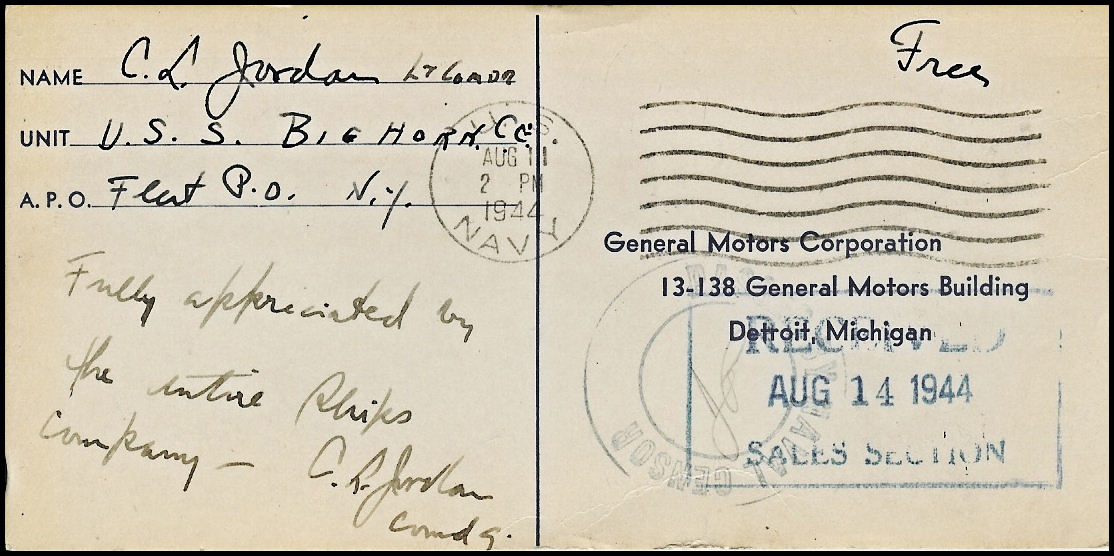 NAME C. L. Jordan Lt Comdr
UNIT U. S. S. BIG HORN. CG.
A. P. O. Fleet P.O. N.Y.
Fully appreciated by
the entire Ships
Company —
C. L. Jordan
Comdg.
U.S.
AUG 11
2 PM
1944
NAVY
Free
General Motors Corporation
13-138 General Motors Building
Detroit, Michigan
RECEIVED
AUG 14 1944
SALES SECTION
NAVAL CENSOR